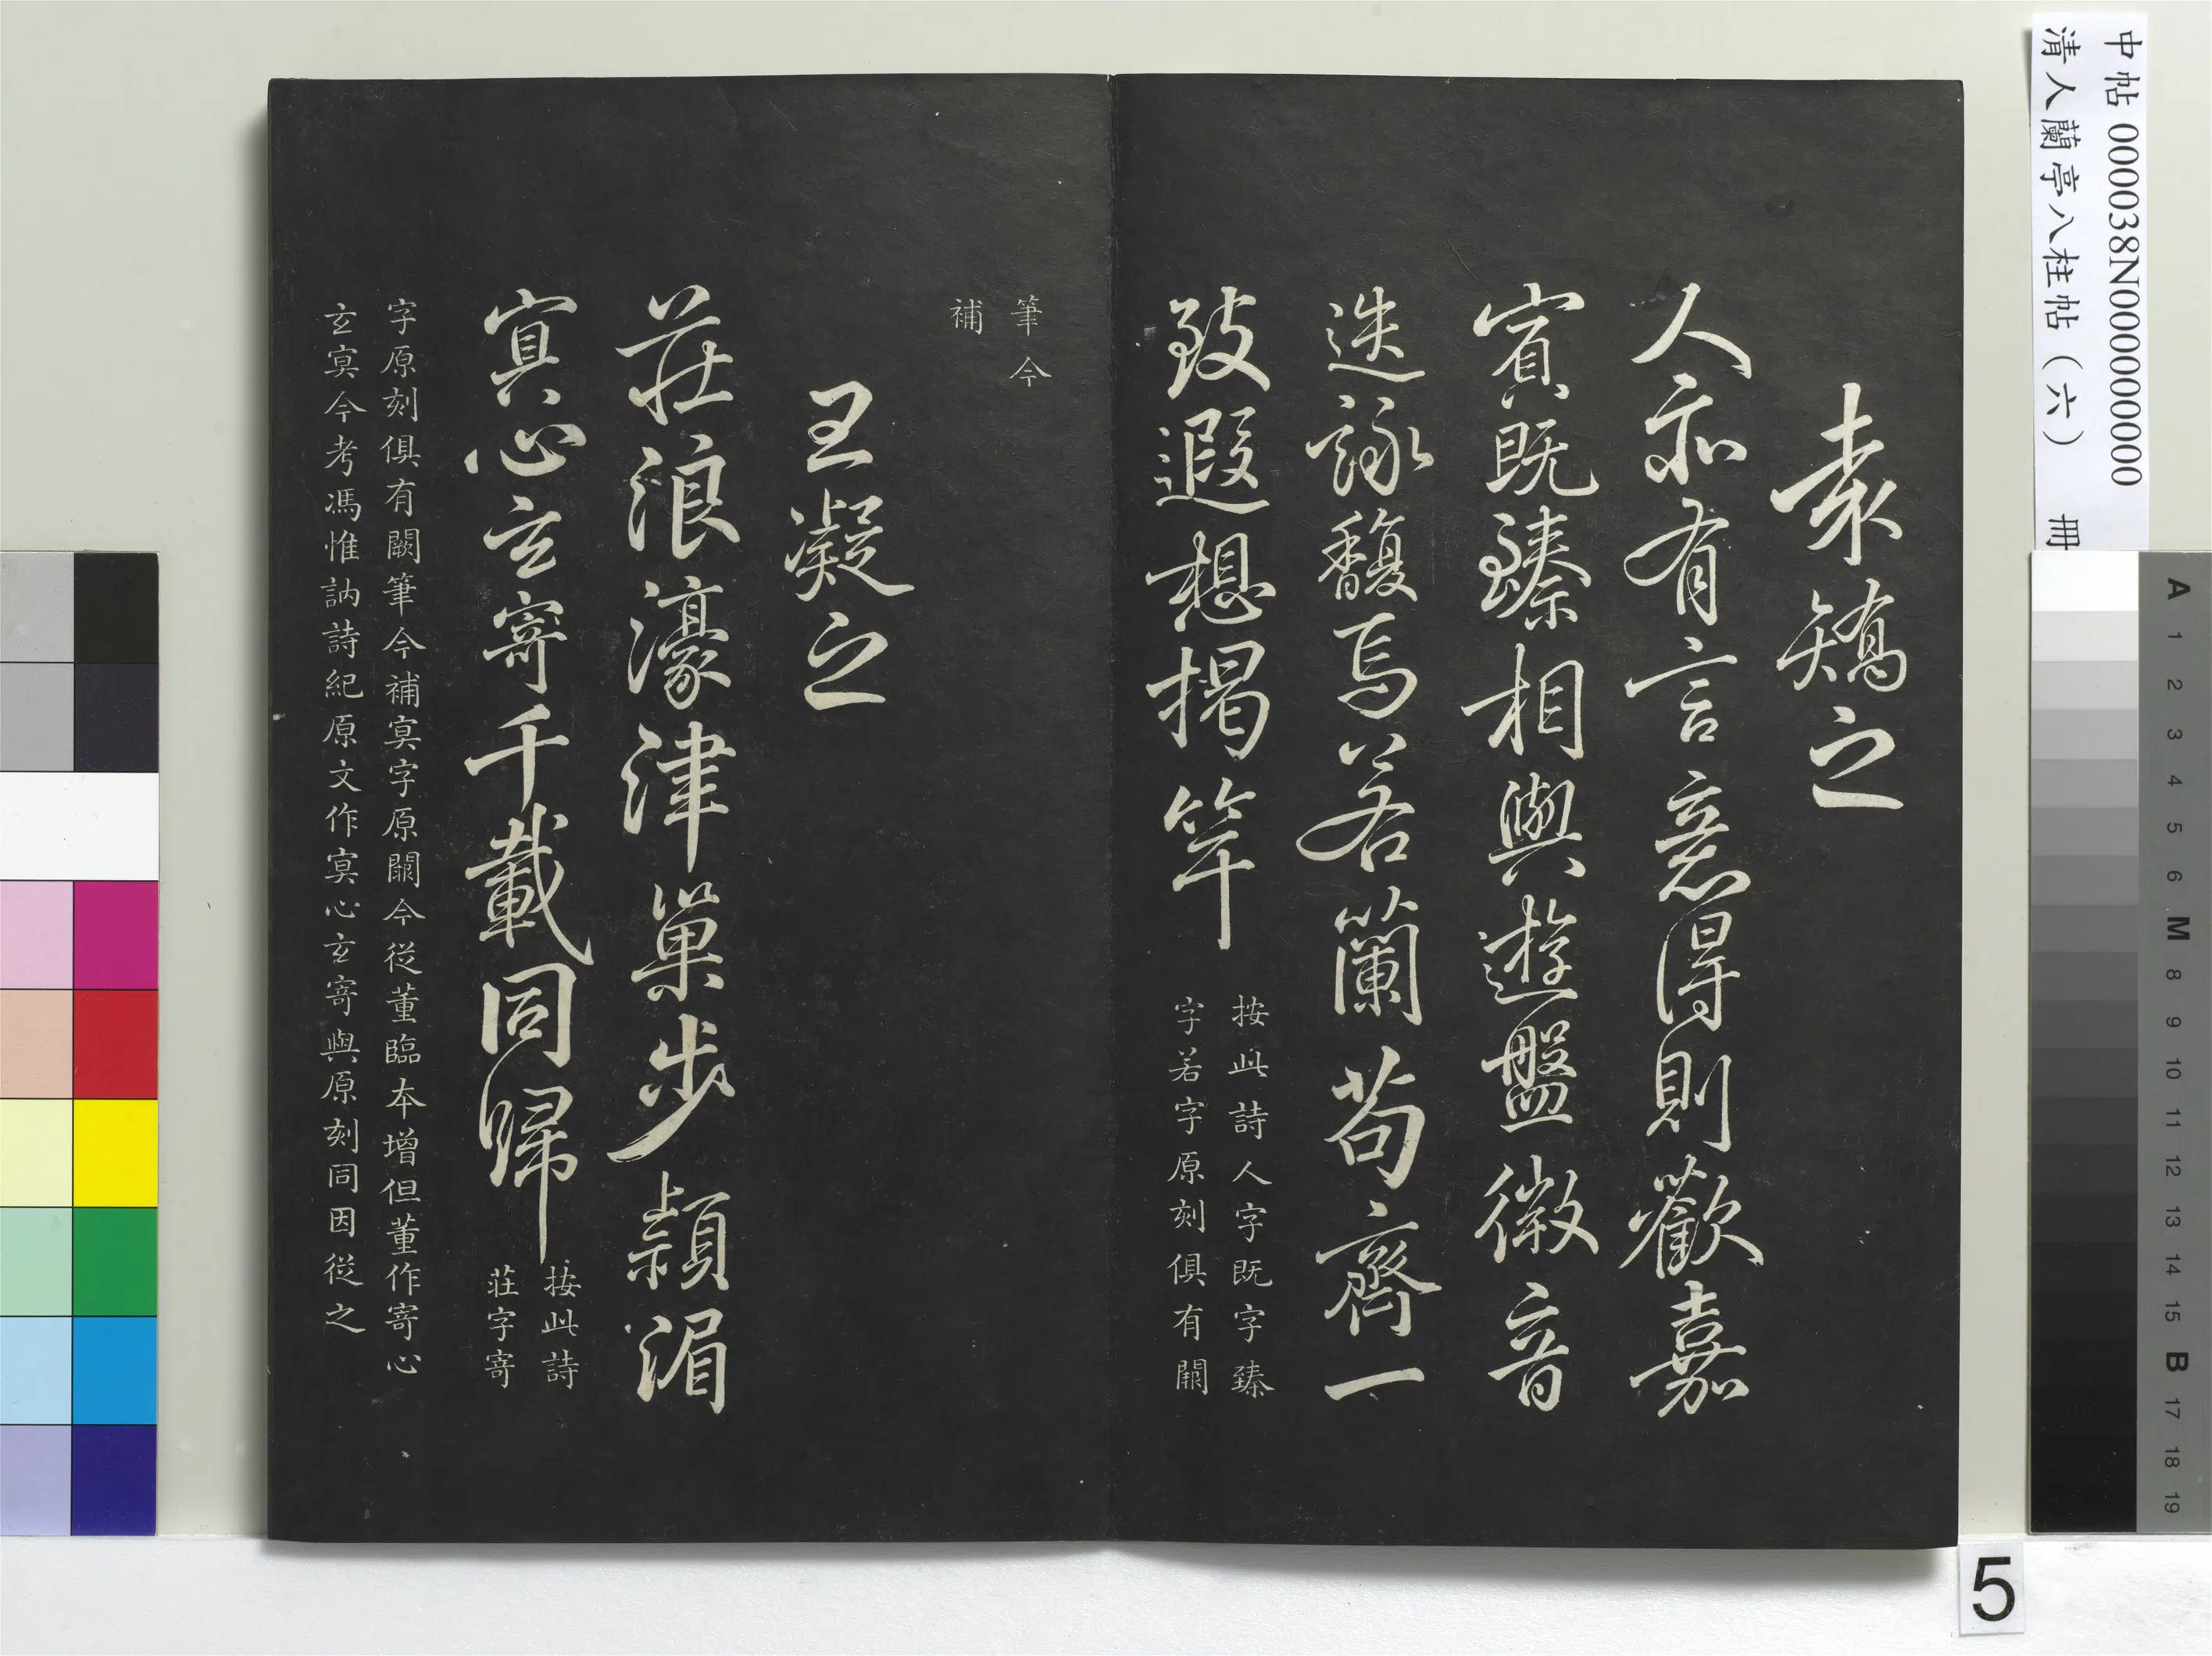 袁矯之
人亦有言意得則歡嘉
賓既臻相與遊盤微音
迭詠馥焉若蘭苟齊一
致遐想揭竿
按此詩人字既字臻
字若字原刻俱有闕
筆今
補
王凝之
莊浪濠津巢步潁湄
冥心玄寄千載同歸
按此詩
莊字寄
字原刻俱有闕筆今補冥字原闕今從董臨本增但董作寄心
玄冥今考馮惟訥詩紀原文作冥心玄寄與原刻同因從之
中帖 000038N000000000
清人蘭亭八柱帖（六） 冊
A 1 2 3 4 5 6 M 8 9 10 11 12 13 14 15 B 17 18 19
5